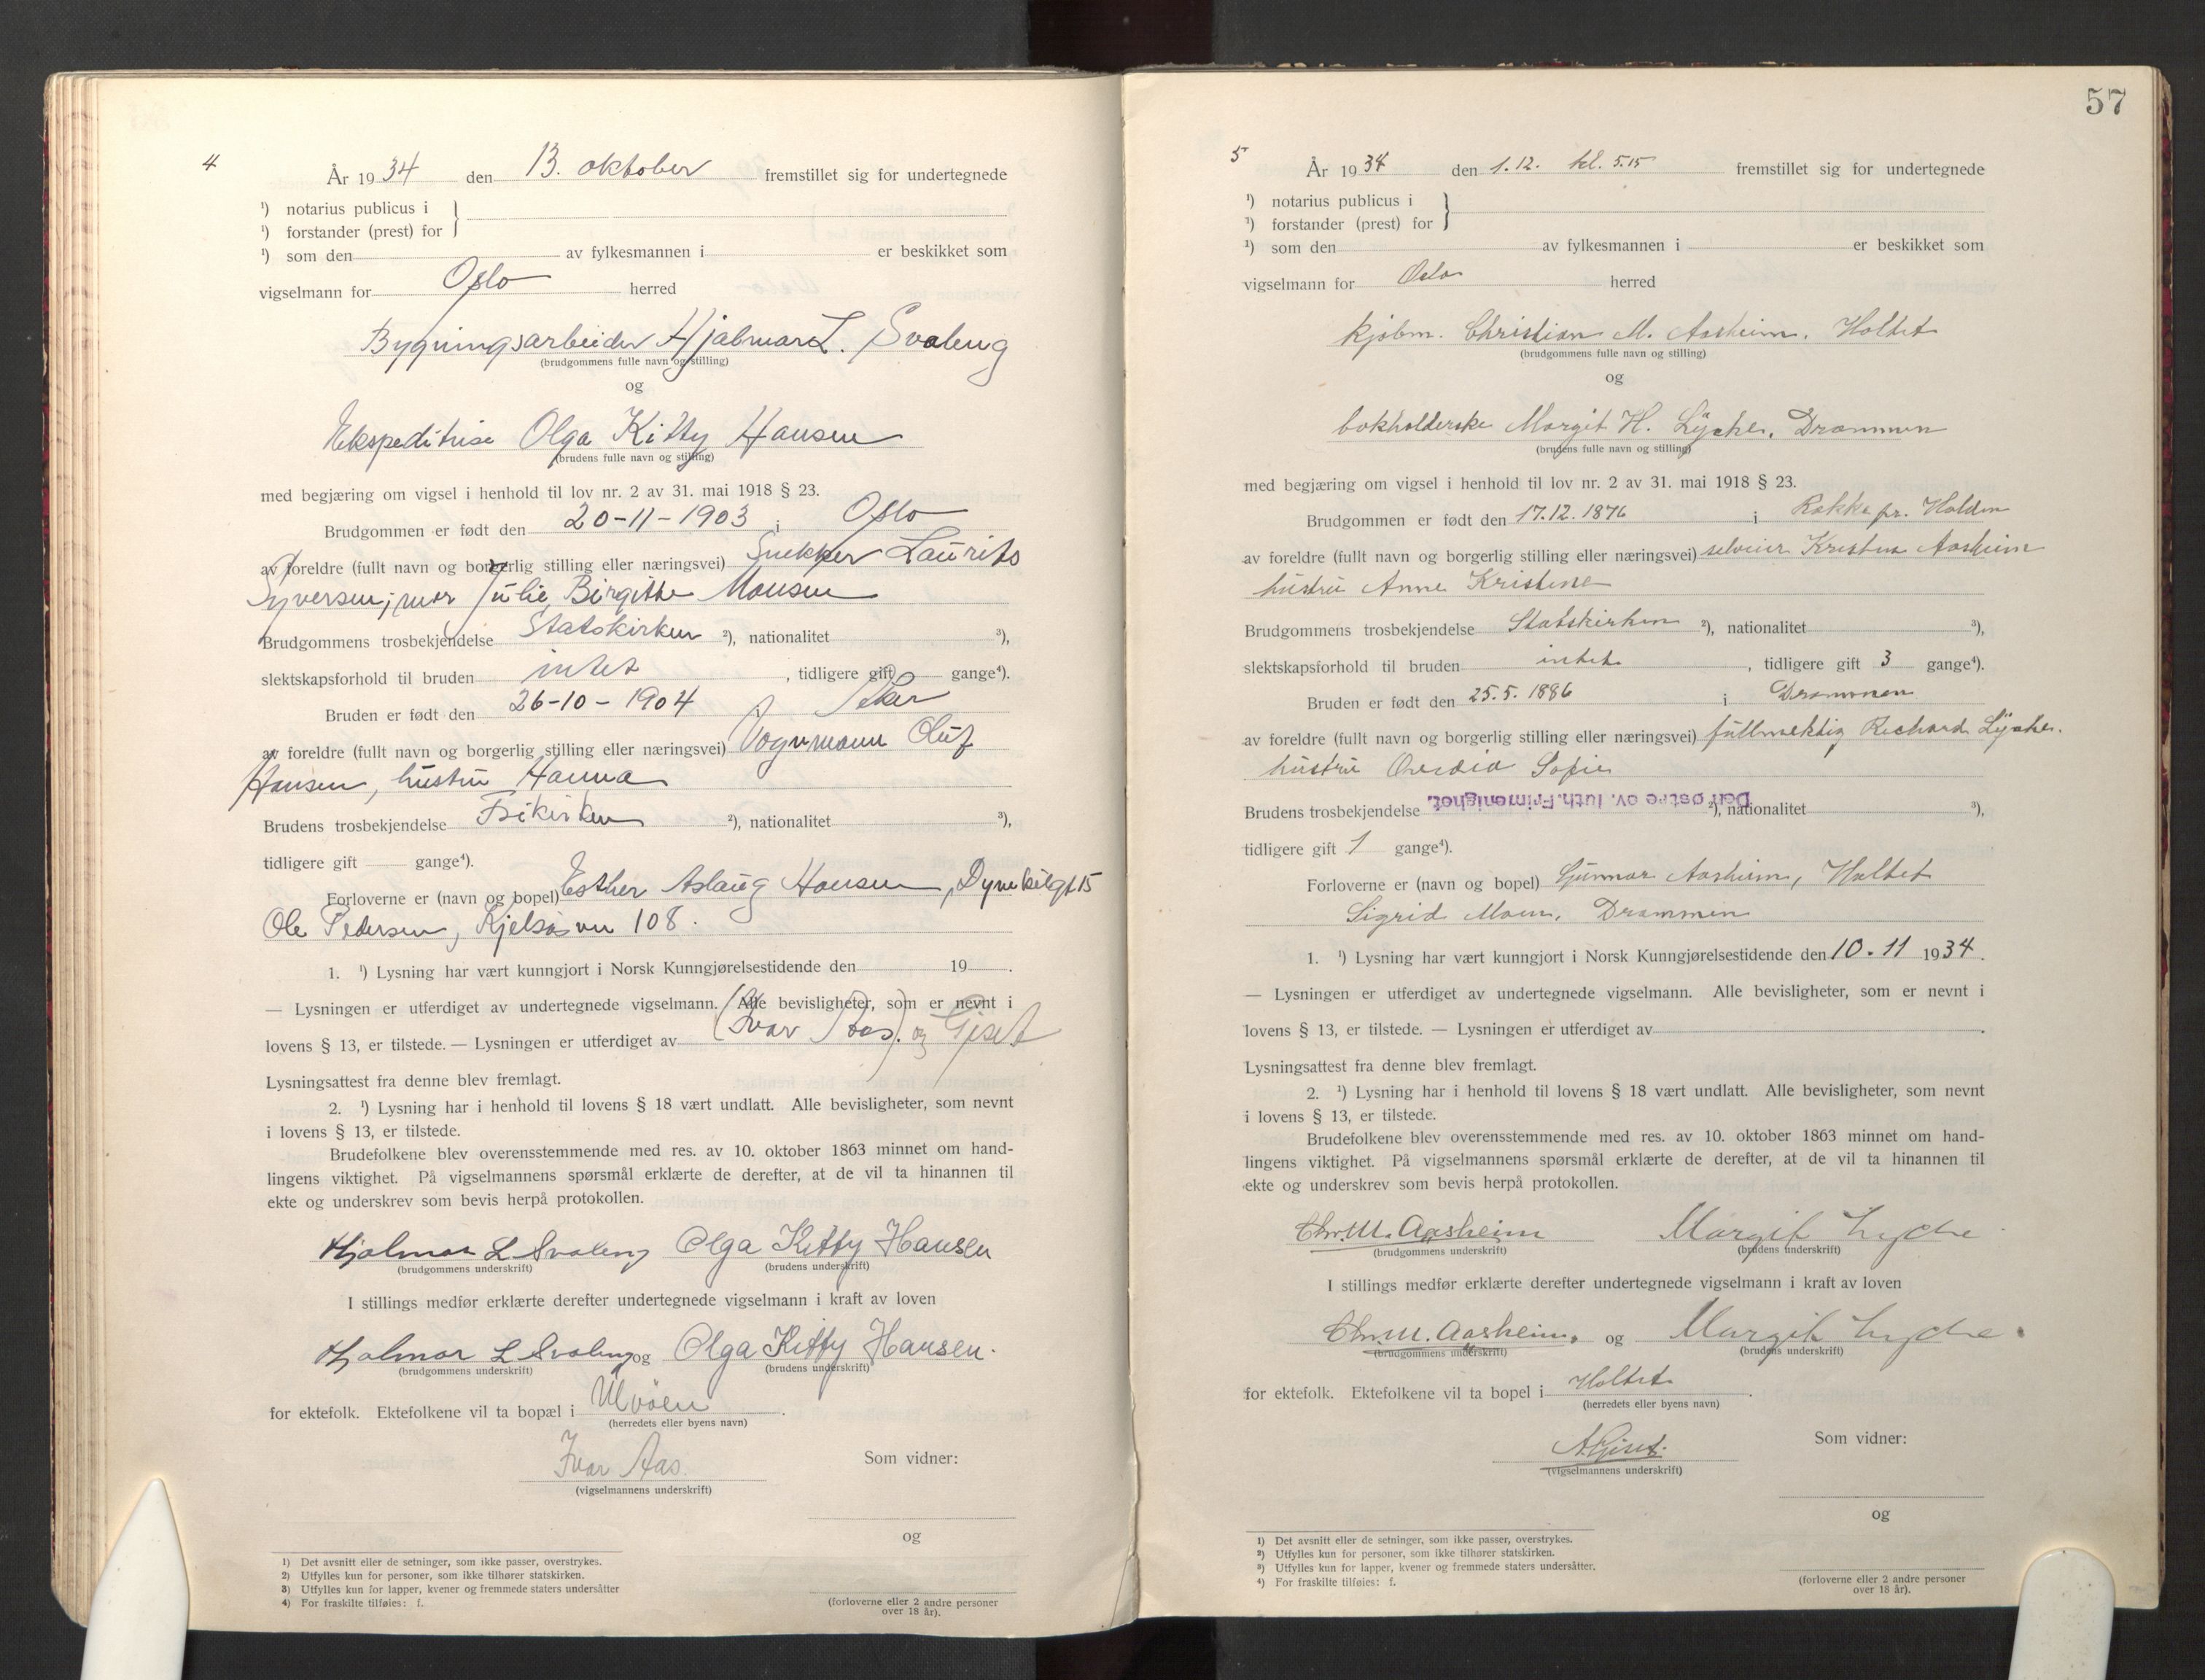 4
År 1934 den 13. oktober fremstillet sig for undertegnede
¹) notarius publicus i
¹) forstander (prest) for
¹) som den av fylkesmannen i er beskikket som
vigselmann for Oslo herred
Bygningsarbeider Hjalmar L. Svaleng
(brudgommens fulle navn og stilling)
og
Ekspeditrise Olga Kitty Hansen
(brudens fulle navn og stilling)
med begjæring om vigsel i henhold til lov nr. 2 av 31. mai 1918 § 23.
Brudgommen er født den 20-11-1903 i Oslo
av foreldre (fullt navn og borgerlig stilling eller næringsvei) Snekker Laurits
Syversen; mor Julie Birgitte Monsen
Brudgommens trosbekjendelse Statskirken ²), nationalitet ³),
slektskapsforhold til bruden intet , tidligere gift gange⁴).
Bruden er født den 26-10-1904 i Aker
av foreldre (fullt navn og borgerlig stilling eller næringsvei) Vognmann Oluf
Hansen, hustru Hanna
Brudens trosbekjendelse Frikirken ²), nationalitet ³),
tidligere gift gange⁴).
Forloverne er (navn og bopel) Esther Aslaug Hansen, Dynekilgt 15
Ole Pedersen, Kjelsåsvn 108.
1. ¹) Lysning har vært kunngjort i Norsk Kunngjørelsestidende den 19 .
— Lysningen er utferdiget av undertegnede vigselmann. Alle bevisligheter, som er nevnt i
lovens § 13, er tilstede. — Lysningen er utferdiget av (Ivar Aas). og Giset
Lysningsattest fra denne blev fremlagt.
2. ¹) Lysning har i henhold til lovens § 18 vært undlatt. Alle bevisligheter, som nevnt
i lovens § 13, er tilstede.
Brudefolkene blev overensstemmende med res. av 10. oktober 1863 minnet om hand-
lingens viktighet. På vigselmannens spørsmål erklærte de derefter, at de vil ta hinannen til
ekte og underskrev som bevis herpå protokollen.
Hjalmar L Svaleng Olga Kitty Hansen
(brudgommens underskrift) (brudens underskrift)
I stillings medfør erklærte derefter undertegnede vigselmann i kraft av loven
Hjalmar L Svaleng og Olga Kitty Hansen.
(brudgommens underskrift) (brudens underskrift)
for ektefolk. Ektefolkene vil ta bopæl i Ulvöen .
(herredets eller byens navn)
Ivar Aas.
(vigselmannens underskrift)
Som vidner:
og
(forloverne eller 2 andre personer
over 18 år).
1) Det avsnitt eller de setninger, som ikke passer, overstrykes.
2) Utfylles kun for personer, som ikke tilhører statskirken.
3) Utfylles kun for lapper, kvener og fremmede staters undersåtter
4) For fraskilte tilføies: f.
57
5
År 1934 den 1.12. kl. 5.15 fremstillet sig for undertegnede
¹) notarius publicus i
¹) forstander (prest) for
¹) som den av fylkesmannen i er beskikket som
vigselmann for Oslo herred
kjøbm. Christian M. Aasheim, Holtet
(brudgommens fulle navn og stilling)
og
bokholderske Margit H. Lyche, Drammen
(brudens fulle navn og stilling)
med begjæring om vigsel i henhold til lov nr. 2 av 31. mai 1918 § 23.
Brudgommen er født den 17.12.1876 i Rokke pr. Halden
av foreldre (fullt navn og borgerlig stilling eller næringsvei) selveier Kristen Aasheim
hustru Anne Kristine
Brudgommens trosbekjendelse Statskirken ²), nationalitet ³),
slektskapsforhold til bruden intet , tidligere gift 3 gange⁴).
Bruden er født den 25.5.1886 i Drammen
av foreldre (fullt navn og borgerlig stilling eller næringsvei) fullmektig Richard Lyche.
hustru Sofie
Brudens trosbekjendelse Den østre ev. luth. Frimenighet. ²), nationalitet ³),
tidligere gift 1 gange⁴).
Forloverne er (navn og bopel) Gunnar Aasheim, Holtet
Sigrid Moen, Drammen
1. ¹) Lysning har vært kunngjort i Norsk Kunngjørelsestidende den 10.11 1934.
— Lysningen er utferdiget av undertegnede vigselmann. Alle bevisligheter, som er nevnt i
lovens § 13, er tilstede. — Lysningen er utferdiget av .
Lysningsattest fra denne blev fremlagt.
2. ¹) Lysning har i henhold til lovens § 18 vært undlatt. Alle bevisligheter, som nevnt
i lovens § 13, er tilstede.
Brudefolkene blev overensstemmende med res. av 10. oktober 1863 minnet om hand-
lingens viktighet. På vigselmannens spørsmål erklærte de derefter, at de vil ta hinannen til
ekte og underskrev som bevis herpå protokollen.
Chr. M. Aasheim Margit Lyche
(brudgommens underskrift) (brudens underskrift)
I stillings medfør erklærte derefter undertegnede vigselmann i kraft av loven
Chr. M. Aasheim. og Margit Lyche.
(brudgommens underskrift) (brudens underskrift)
for ektefolk. Ektefolkene vil ta bopel i Holtet .
(herredets eller byens navn)
A Giset.
(vigselmannens underskrift)
Som vidner:
og
(forloverne eller 2 andre personer
over 18 år).
¹) Det avsnitt eller de setninger, som ikke passer, overstrykes.
²) Utfylles kun for personer, som ikke tilhører statskirken.
³) Utfylles kun for lapper, kvener og fremmede staters undersåtter.
⁴) For fraskilte tilføies: f.